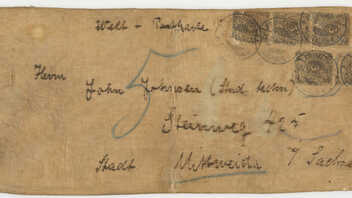 Welt - Postkarte
5
Herrn John Johnsen (Stud. techn.)
Steinweg 425
Stadt Mittweida i/ Sachse